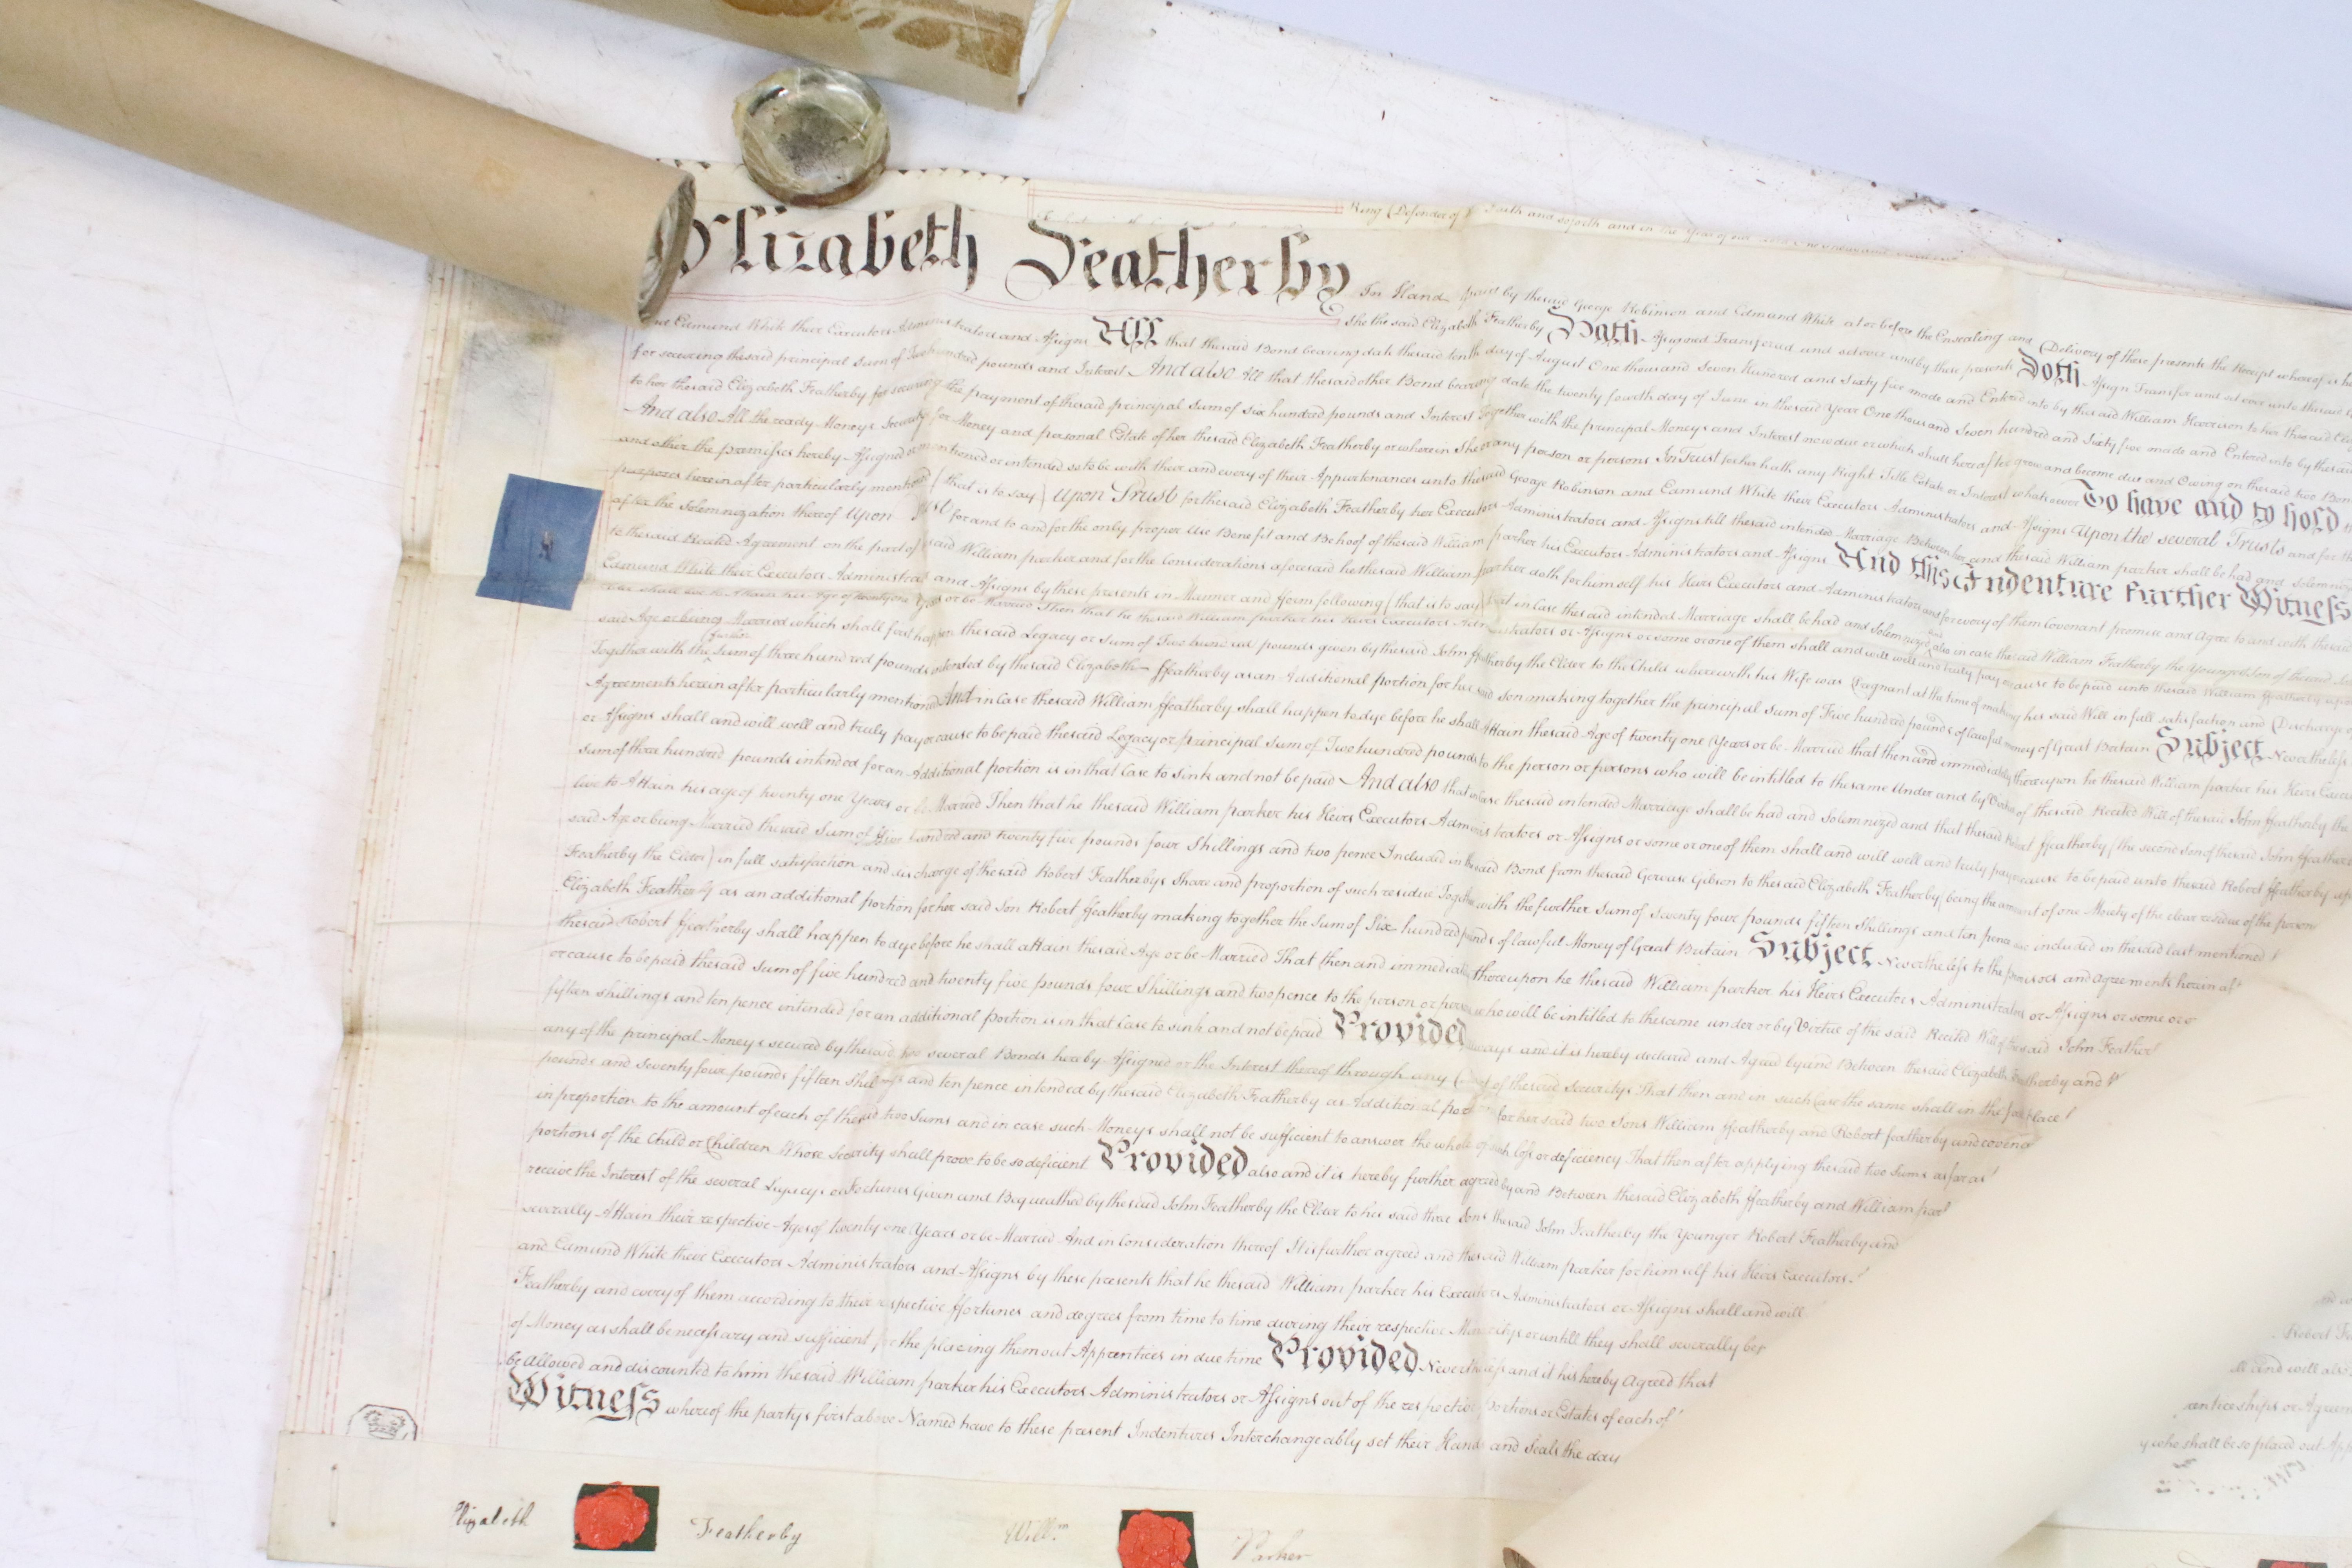 King (Defender of Faith and so forth and in the Year of
Elizabeth Featherby In Hand paid by the said George Robinson and Edmund White at or before the Ensealing and Delivery of these presents the Receipt whereof is
She the said Elizabeth Featherby Hath Assigned Transfered and set over and by these presents Doth Assign Transfer and set over unto the said
Edmund White their Executors Administrators and Assigns All that the said Bond bearing date the said tenth day of August One thousand Seven Hundred and Sixty five made and Entered into by the said William Harrison to her the said
for securing the said principal Sum of Two hundred pounds and Interest And also All that the said other Bond bearing date the twenty fourth day of June in the said Year One thousand Seven hundred and Sixty five made and Entered into by the said
to her the said Elizabeth Featherby for securing the payment of the said principal Sum of six hundred pounds and Interest Together with the principal Moneys and Interest now due or which shall hereafter grow and become due and Owing on the said two
And also All the ready Moneys Securitys for Money and personal Estate of her the said Elizabeth Featherby or wherein She or any person or persons In Trust for her hath any Right Title Estate or Interest whatsoever To have and to hold
and other the premisses hereby Assigned or mentioned or intended so to be with their and every of their Appurtenances unto the said George Robinson and Edmund White their Executors Administrators and Assigns Upon the several Trusts and for the
purposes herein after particularly mentioned (that is to say) Upon Trust for the said Elizabeth Featherby her Executors Administrators and Assigns till the said intended Marriage Between her and the said William parker shall be had and Solemnized
after the Solemnization thereof Upon for and to and for the only proper Use Benefit and Behoof of the said William parker his Executors Administrators and Assigns And this Indenture further Witness
to the said Recited Agreement on the part of said William parker and for the Considerations aforesaid he the said William parker doth for himself his Heirs Executors and Administrators and for every of them Covenant promise and Agree to and with the said
Edmund White their Executors Administrators and Assigns by these presents in Manner and fform following (that is to say) that in Case the said intended Marriage shall be had and Solemnized and also in case the said William Featherby the Youngest Son of the said
shall live to Attain his Age of twenty one Years or be Married Then that he the said William parker his Heirs Executors Administrators or Assigns or some or one of them shall and will well and truly pay or cause to be paid unto the said William ffeatherby
said Age or being Married which shall first happen the said Legacy or Sum of Two hundred pounds given by the said John ffeatherby the Elder to the Child wherewith his Wife was Pregnant at the time of making his said Will in full satisfaction and Discharge
Together with the further Sum of three hundred pounds intended by the said Elizabeth ffeatherby as an Additional portion for her said son making together the principal Sum of Five hundred pounds of lawful money of Great Britain Subject Nevertheless
Agreements herein after particularly mentioned And in Case the said William ffeatherby shall happen to dye before he shall Attain the said Age of twenty one Years or be Married that then and immediately thereupon he the said William parker his Heirs
or Assigns shall and will well and truly pay or cause to be paid the said Legacy or principal Sum of Two hundred pounds to the person or persons who will be intitled to the same Under and by Virtue of the said Recited Will of the said John ffeatherby the
sum of three hundred pounds intended for an Additional portion is in that Case to Sink and not be paid And also that in Case the said intended Marriage shall be had and Solemnized and that the said Robert ffeatherby (the second Son of the said John
live to Attain his age of twenty one Years or be Married Then that he the said William parker his Heirs Executors Administrators or Assigns or some or one of them shall and will well and truly pay or cause to be paid unto the said Robert ffeatherby
said Age or being Married the said Sum of five hundred and twenty five pounds four Shillings and two pence Included in the said Bond from the said Gervase Gibson to the said Elizabeth Featherby (being the amount of one Moiety of the clear residue of the
Featherby the Elder) in full satisfaction and discharge of the said Robert Featherbys Share and proportion of such residue Together with the further Sum of seventy four pounds fifteen Shillings and ten pence included in the said last mentioned
Elizabeth Featherby as an additional portion for her said Son Robert ffeatherby making together the Sum of Six hundred pounds of lawful Money of Great Britain Subject Nevertheless to the provisoes and Agreements herein
the said Robert ffeatherby shall happen to dye before he shall attain the said Age or be Married That then and immediately thereupon he the said William parker his Heirs Executors Administrators or Assigns or some
or cause to be paid the said Sum of five hundred and twenty five pounds four Shillings and two pence to the person or persons who will be intitled to the same under or by Virtue of the said Recited Will of the said John
fifteen shillings and ten pence intended for an additional portion is in that Case to sink and not be paid Provided always and it is hereby declared and Agreed by and Between the said Elizabeth Featherby and
any of the principal Moneys secured by the said two several Bonds hereby Assigned or the Interest thereof through any of the said Securitys That then and in such Case the same shall in the first place
pounds and seventy four pounds fifteen Shillings and ten pence intended by the said Elizabeth Featherby as Additional for her said two Sons William ffeatherby and Robert featherby and
in proportion to the amount of each of the said two Sums and in case such Moneys shall not be sufficient to answer the whole of such loss or deficiency That then after applying the said two Sums as far as
portions of the Child or Children Whose Security shall prove to be so deficient Provided also and it is hereby further agreed by and Between the said Elizabeth ffeatherby and William
receive the Interest of the several Legacys or Fortunes Given and Bequeathed by the said John Featherby the Elder to his said three Sons the said John Featherby the Younger Robert Featherby and
severally Attain their respective Ages of twenty one Years or be Married And in Consideration thereof It is further agreed and the said William parker for himself his Heirs Executors
and Edmund White their Executors Administrators and Assigns by these presents that he the said William parker his Executors Administrators or Assigns shall and will
Featherby and every of them according to their respective ffortunes and degrees from time to time during their respective Minoritys or untill they shall severally
of Money as shall be necessary and sufficient for the placing them out Apprentices in due time Provided Nevertheless and it is hereby Agreed that
be Allowed and discounted to him the said William parker his Executors Administrators or Assigns out of the respective portions or Estates of each of
Witness whereof the partys first above Named have to these present Indentures Interchangeably set their Hands and Seals the day
Robert
and will also
y who shall be so placed out
Elizabeth Featherby
Will.m Parker